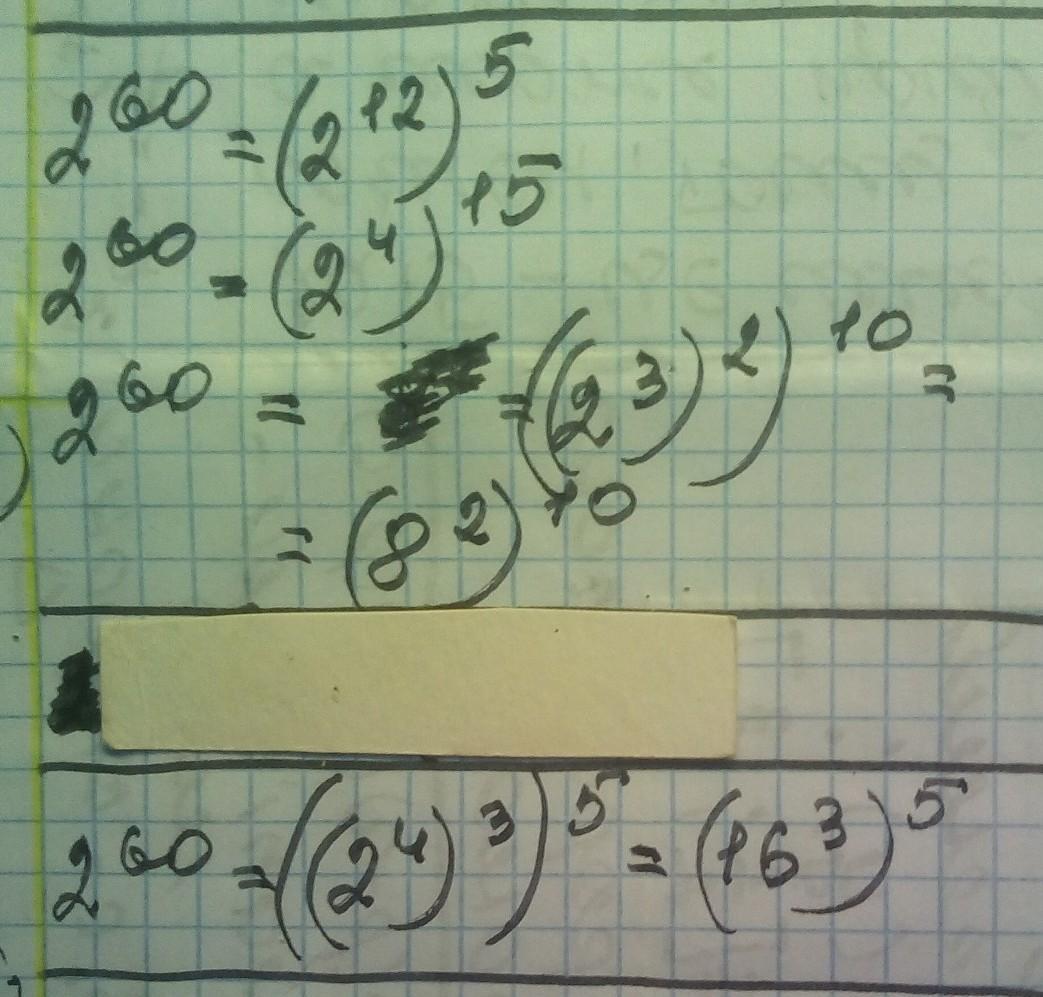 2^60 = (2^12)^5
2^60 = (2^4)^15
2^60 = = ((2^3)^2)^10 =
= (8^2)^10
2^60 = ((2^4)^3)^5 = (16^3)^5